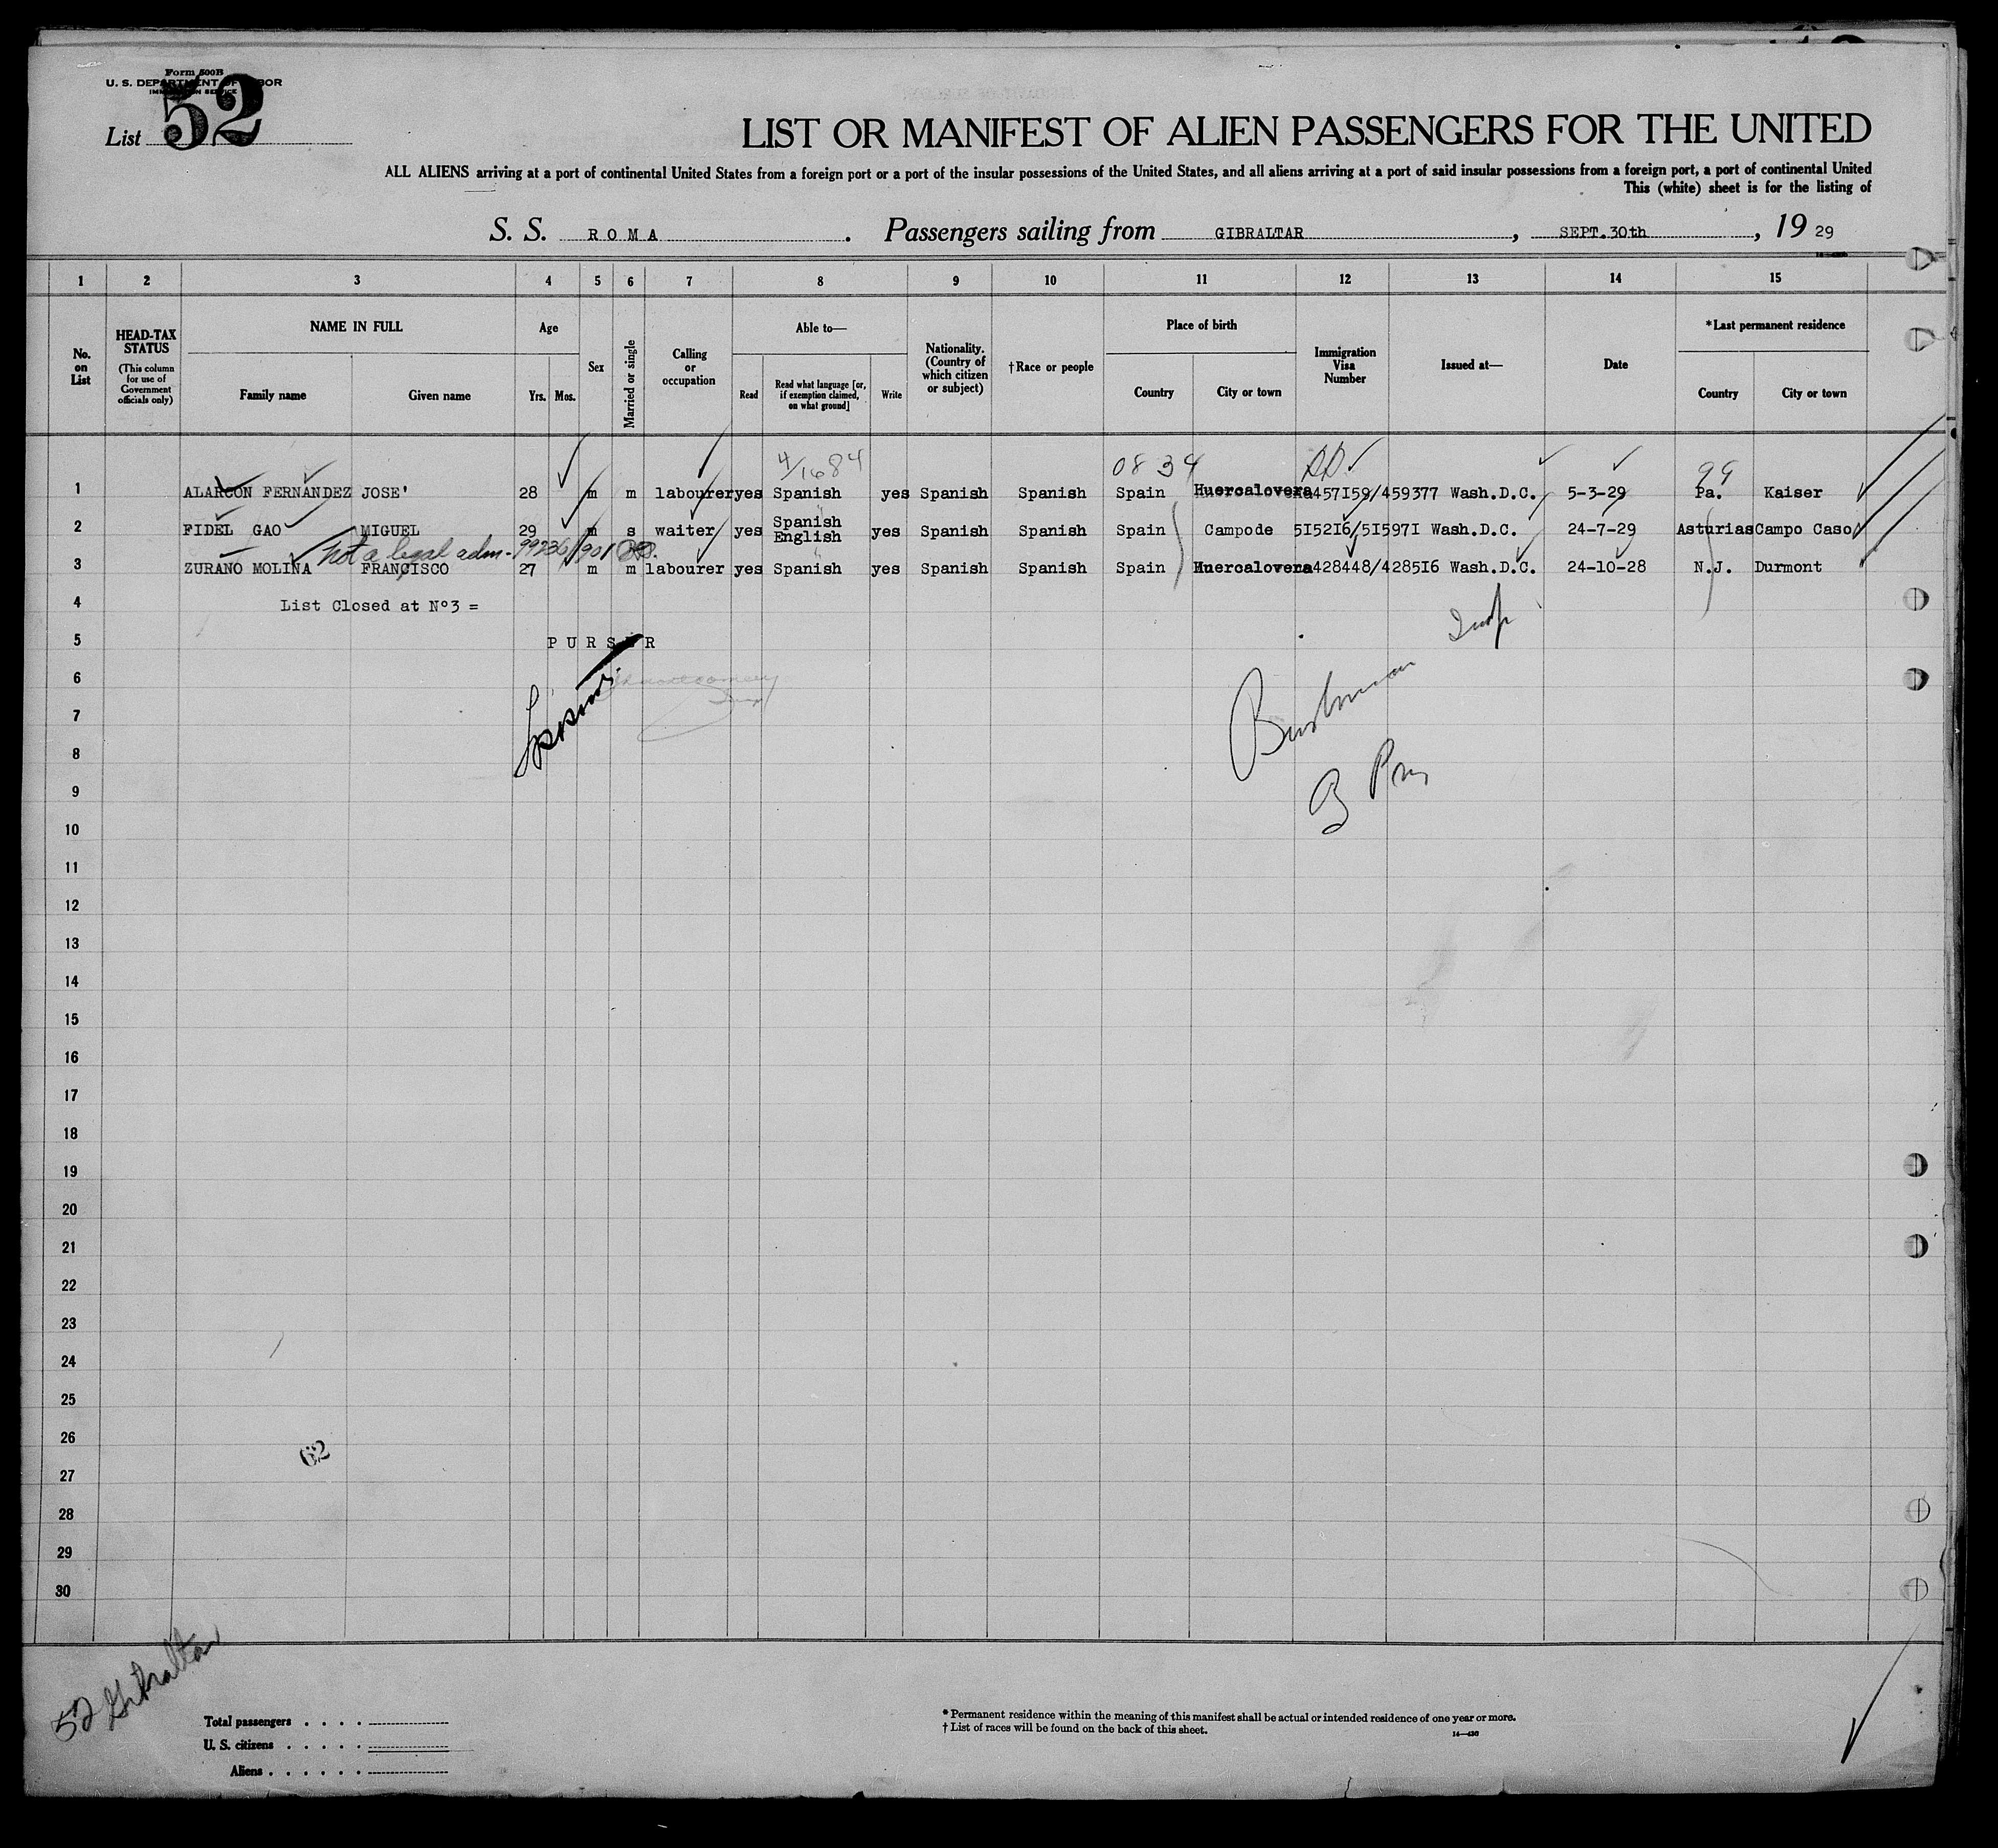 Form 500B
U. S. DEPARTMENT OF LABOR
IMMIGRATION SERVICE
List 52
LIST OR MANIFEST OF ALIEN PASSENGERS FOR THE UNITED
ALL ALIENS arriving at a port of continental United States from a foreign port or a port of the insular possessions of the United States, and all aliens arriving at a port of said insular possessions from a foreign port, a port of continental United
This (white) sheet is for the listing of
S. S. ROMA. Passengers sailing from GIBRALTAR, SEPT.30th, 19 29
1 2 3 4 5 6 7 8 9 10 11 12 13 14 15
No. on List
HEAD-TAX STATUS (This column for use of Government officials only)
NAME IN FULL Family name Given name
Age Yrs. Mos.
Sex
Married or single
Calling or occupation
Able to— Read Read what language [or, if exemption claimed, on what ground] Write
Nationality. (Country of which citizen or subject)
†Race or people
Place of birth Country City or town
Immigration Visa Number
Issued at—
Date
*Last permanent residence Country City or town
4/16 84 08 34 99
1 ALARCON FERNANDEZ JOSE' 28 m m labourer yes Spanish yes Spanish Spanish Spain Huercalovera 457I59/459377 Wash.D.C. 5-3-29 Pa. Kaiser
2 FIDEL GAO MIGUEL 29 m s waiter yes Spanish English yes Spanish Spanish Spain Campode 5I52I6/5I597I Wash.D.C. 24-7-29 Asturias Campo Caso
Not a legal adm. - 99236/901
3 ZURANO MOLINA FRANCISCO 27 m m labourer yes Spanish yes Spanish Spanish Spain Huercalovera 428448/4285I6 Wash.D.C. 24-10-28 N.J. Durmont
4 List Closed at Nº3 =
5 PURSER
6
7
8
9
10
11
12
13
14
15
16
17
18
19
20
21
22
23
24
25
26
62
27
28
29
30
52 Gibraltar
Total passengers
U. S. citizens
Aliens
* Permanent residence within the meaning of this manifest shall be actual or intended residence of one year or more.
† List of races will be found on the back of this sheet.
14—430